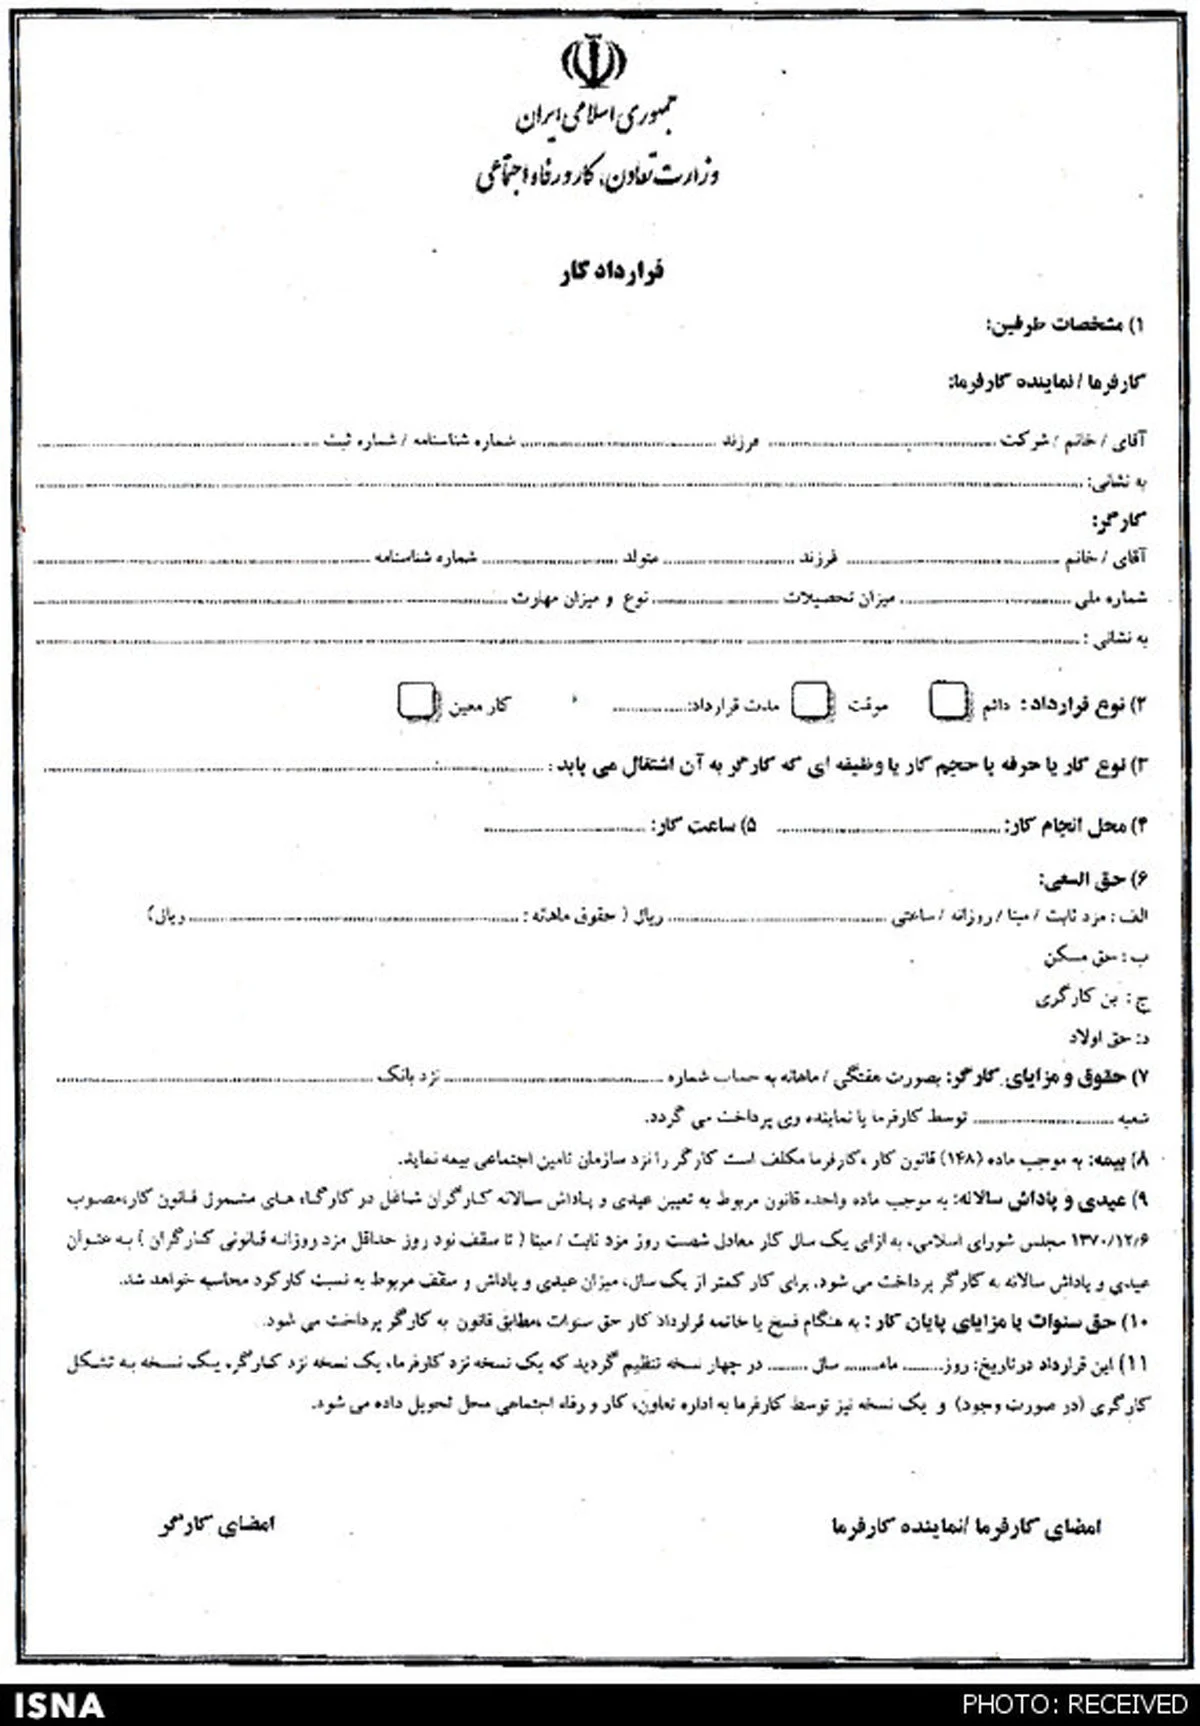 جمهوری اسلامی ایران
وزارت تعاون، کار و رفاه اجتماعی
قرارداد کار
۱) مشخصات طرفین:
کارفرما /نماینده کارفرما:
آقای / خانم / شرکت .................... فرزند .................... شماره شناسنامه / شماره ثبت ....................
به نشانی: ....................
کارگر:
آقای / خانم .................... فرزند .................... متولد .................... شماره شناسنامه ....................
شماره ملی .................... میزان تحصیلات .................... نوع و میزان مهارت ....................
به نشانی : ....................
۲) نوع قرارداد : دائم موقت مدت قرارداد:............ کار معین
۳) نوع کار یا حرفه یا حجم کار یا وظیفه ای که کارگر به آن اشتغال می یابد : ....................
۴) محل انجام کار: .................... ۵) ساعت کار: ....................
۶) حق السعی:
الف : مزد ثابت / مبنا / روزانه / ساعتی .................... ریال ( حقوق ماهانه : .................... ریال)
ب : حق مسکن
ج : بن کارگری
د: حق اولاد
۷) حقوق و مزایای کارگر: بصورت هفتگی / ماهانه به حساب شماره .................... نزد بانک ....................
شعبه .................... توسط کارفرما یا نماینده وی پرداخت می گردد.
۸) بیمه: به موجب ماده (۱۴۸) قانون کار ،کارفرما مکلف است کارگر را نزد سازمان تامین اجتماعی بیمه نماید.
۹) عیدی و پاداش سالانه: به موجب ماده واحده قانون مربوط به تعیین عیدی و پاداش سالانه کارگران شاغل در کارگاه های مشمول قانون کار،مصوب
۱۳۷۰/۱۲/۶ مجلس شورای اسلامی، به ازای یک سال کار معادل شصت روز مزد ثابت / مبنا ( تا سقف نود روز حداقل مزد روزانه قانونی کارگران ) به عنوان
عیدی و پاداش سالانه به کارگر پرداخت می شود. برای کار کمتر از یک سال، میزان عیدی و پاداش و سقف مربوط به نسبت کارکرد محاسبه خواهد شد.
۱۰) حق سنوات یا مزایای پایان کار : به هنگام فسخ یا خاتمه قرارداد کار حق سنوات ،مطابق قانون به کارگر پرداخت می شود.
۱۱) این قرارداد در تاریخ: روز........ ماه....... سال ........ در چهار نسخه تنظیم گردید که یک نسخه نزد کارفرما، یک نسخه نزد کارگر، یک نسخه به تشکل
کارگری (در صورت وجود) و یک نسخه نیز توسط کارفرما به اداره تعاون، کار و رفاه اجتماعی محل تحویل داده می شود.
امضای کارفرما /نماینده کارفرما امضای کارگر
ISNA PHOTO: RECEIVED